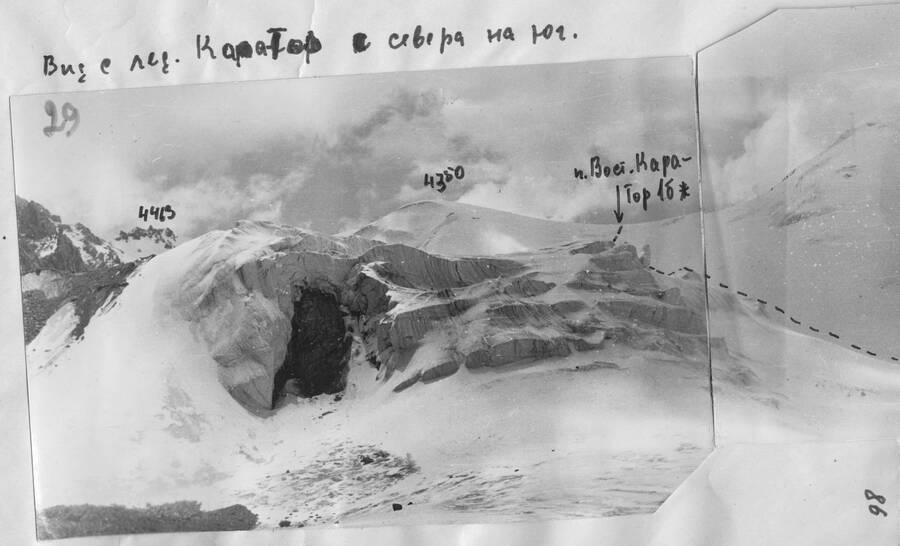 Вид с лед. КараТор с севера на юг.
29
4350
п. Вост. Кара-
Тор 1б*
4413
98